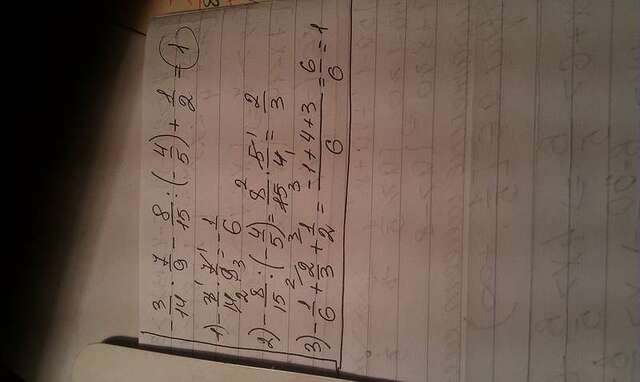 -3/14 · 7/9 - 8/15 : (-4/5) + 1/2 = 1
1) -3/14 · 7/9 = -1/6
2) -8/15 : (-4/5) = 8/15 · 5/4 = 2/3
3) -1/6 + 2/3 + 1/2 = -1+4+3/6 = 6/6 = 1